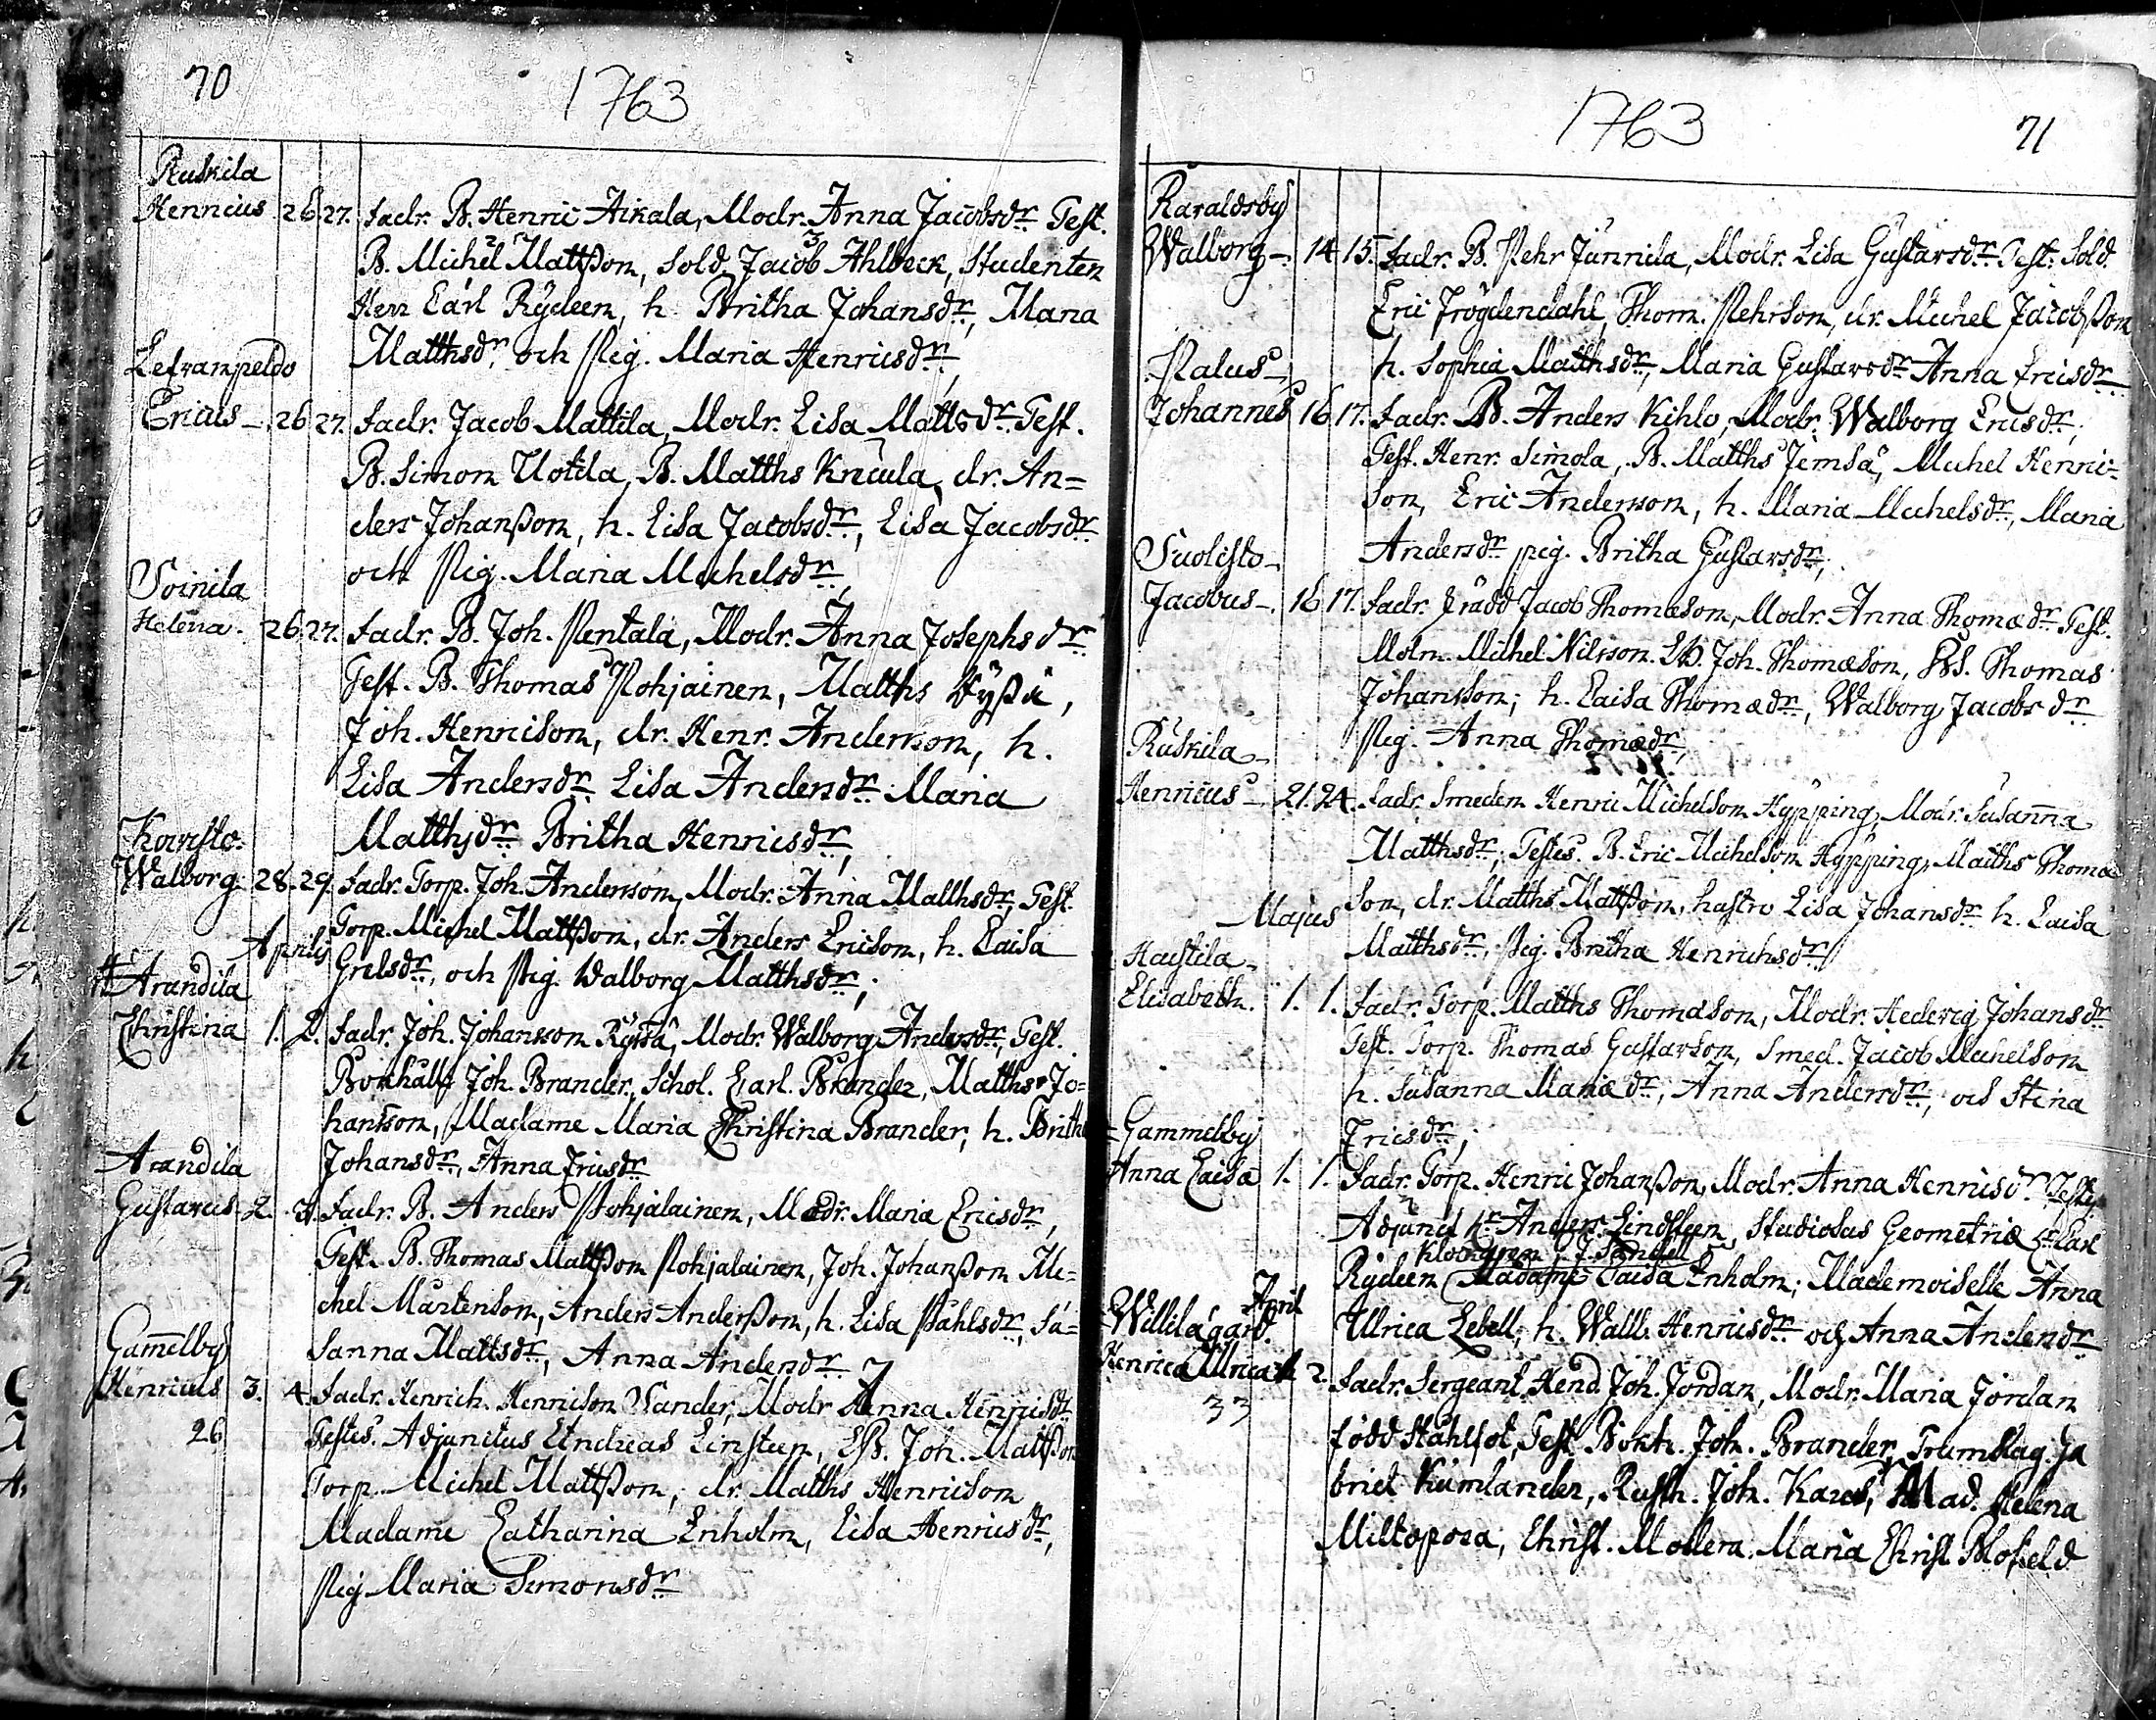 70
1763
Ruskila
Henricus 26 27. Fadr. B. Henric Aikala, Modr. Anna Jacobsdr Test.
B. Michel Mattßon, Sold. Jacob Ahlbeck, Studenten
Herr Carl Rydeen, h. Britha Johansdr, Maria
Matthsdr och Pig. Maria Henricsdr,
Ericus - 26 27. Fadr. Jacob Mattila, Modr. Lisa Mattsdr. Test.
B. Simon Uotila, B. Matths Knuula, dr. An=
ders Johanßon, h. Lisa Jacobsdr, Lisa Jacobsdr
och Pig. Maria Michelsdr,
Soinila
Helena. 26 27. Fadr. B. Joh. Pentala, Modr. Anna Josephsdr
Test. B. Thomas Pohjainen, Matths
Joh. Henricson, dr. Henr. Andersson, h.
Lisa Andersdr Lisa Andersdr Maria
Matthsdr Britha Henricsdr,
Koivisto.
Walborg 28. 29 Fadr. Torp. Joh. Andersson, Modr. Anna Matthsdr, Test.
Torp. Michel Mattßon, dr. Anders Ericson, h. Caisa
Aprilis
Grelsdr, och Pig. Walborg Matthsdr,
Arandila
Christina 1. 2. Fadr. Joh. Johansson Ryssä, Modr. Walborg Andersdr, Test.
Bokhåll. Joh. Brander, Schol. Carl. Brander, Matths Jo=
hansson, Madame Maria Christina Brander, h. Britha
Johansdr, Anna Ericsdr
Arandila
Gustavus 2. Fadr. B. Anders Pohjalainen, Modr. Maria Ericsdr,
Test. B. Thomas Mattßon Pohjalainen, Joh. Johanßon Mi=
chel Mårtenson, Anders Anderßon, h. Lisa Påhlsdr, Su=
sanna Mattsdr, Anna Andersdr
Gamelby
Henricus 3. 4. Fadr. Henrich Henricson Sander, Modr Anna Henricsdr
26
Testes. Adjunctus Andreas Linsteen, Joh. Mattßon
Torp. Michel Mattßon, dr. Matths Henricson
Madame Catharina Enholm, Lisa Henricsdr,
Pig. Maria Simonsdr
1763
71
Karaldsby
Walborg - 14 15. Fadr. B. Pehr Junnila, Modr. Lisa Gustavsdr Test. Sold.
Eric Frögdendahl, Thom. Pehrson, dr. Michel Jacobßon
h. Sophia Matthsdr, Maria Gustavsdr Anna Ericsdr
Palus -
Johannes 16 17. Fadr. B. Anders Kihlo, Modr. Walborg Ericsdr,
Test. Henr. Simola, B. Matths Jemsä, Michel Henric=
son, Eric Andersson, h. Maria Michelsdr, Maria
Andersdr pig. Britha Gustavsdr,
Suolisto -
Jacobus - 16 17. Fadr. Jacob Thomason, Modr. Anna Thomædr Test.
Moln. Michel Nilsson. Joh. Thomason, Thomas
Johansson, h. Caisa Thomædr, Walborg Jacobsdr
Pig. Anna Thomædr,
Ruskila -
Henricus - 21. 24. Fadr. Smeden Henric Michelson Hypping, Modr. Susanna
Matthsdr, Testes. B. Eric Michelson Hypping, Matths Thoma
son, dr. Matths Mattßon, hustro Lisa Johansdr h. Caisa
Matthsdr, Pig. Britha Henrichsdr
Majus
Haustila -
Elisabeth. 1. 1. Fadr. Torp. Matths Thomason, Modr. Hedevig Johansdr
Test. Torp. Thomas Gustavson, Smed. Jacob Michelson
h. Susanna Mariædr, Anna Andersdr, och Stina
Ericsdr,
Gammelby
Anna Caisa 1. 1. Fadr. Torp. Henric Johanßon, Modr. Anna Henricsdr Testes
Adjunct hr Anders Lindsteen, Studiosus Geometriæ Carl
Rydeen Madame Caisa Enholm, Mademoiselle Anna
Ulrica Lebell, h. Wallb. Henricsdr och Anna Andersdr
April
Willilä gård.
Henrica Ulrica 2. Fadr. Sergeant. Joh. Jordan, Modr. Maria Jordan
33
född Ståhlfot, Test. Bokh. Joh. Brander, Trumslag. Ga
briel Kumlander, Rusth. Joh. Mad. Helena
Miltopoea, Christ. Mollera. Maria Christ.